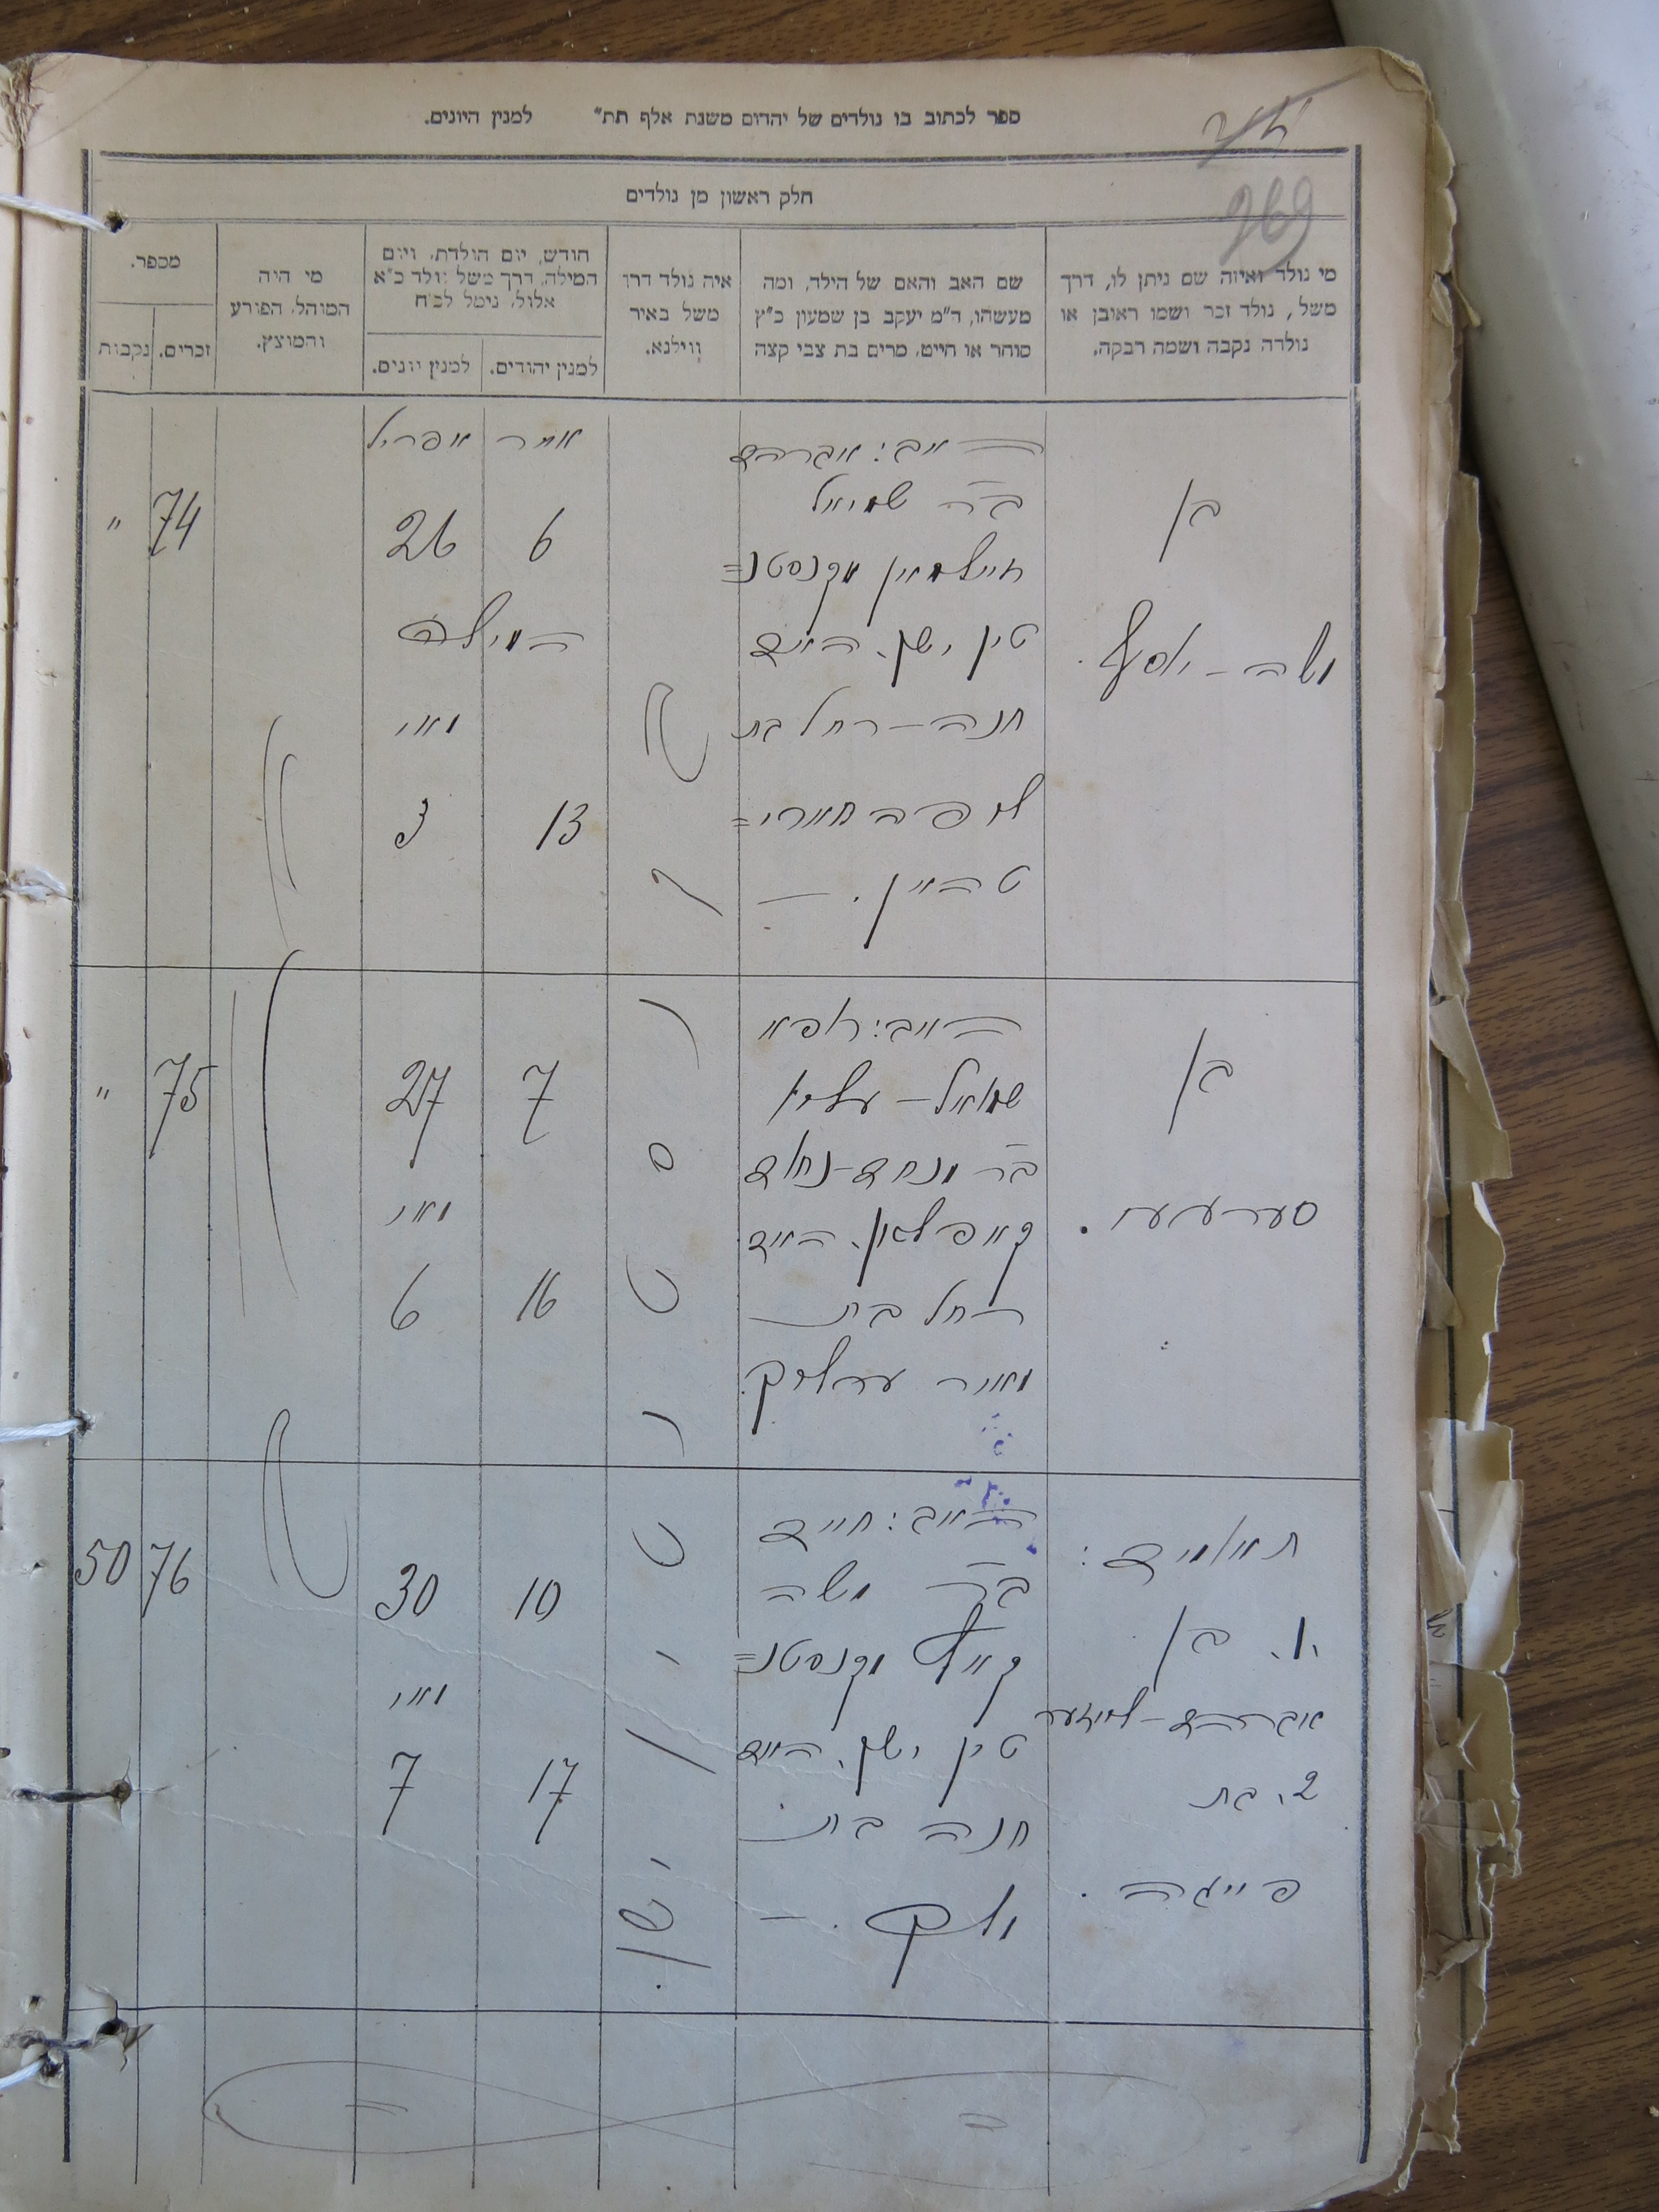 ספר לכתוב בו נולדים של יהדים משנת אלף תת״ למנין היונים.
269
חלק ראשון מן נולדים
מי נולד ואיזה שם ניתן לו, דרך
משל, נולד זכר ושמו ראובן או
נולדה נקבה ושמה רבקה.
שם האב והאם של הילד, ומה
מעשהו, ד״מ יעקב בן שמעון כ״ץ
סוחר או חייט, מרים בת צבי קצה
איה נולד דרך
משל באיר
ווילנא.
חודש, יום הולדת, ויום
המילה, דרך משל נולד כ״א
אלול, נימל לכ״ח
למנין יהודים.
למנין יונים.
מי היה
המוהל, הפורע
והמוצץ.
מספר.
זכרים.
נקבות
בן
משה - יוסף.
האב: אברהם
בר שמואל
מקנסטנ=
טין ישן. האם
חנה - רחל בת
ליפה
אייר
6
13
אפריל
26
המילה
מאי
3
74
״
בן
האב: רופא
שמואל -
בר מנחם - נחום
קאפלאן. האם
רחל בת
מאיר
7
16
27
מאי
6
75
״
תאומים:
1. בן
אברהם - ליזער
2. בת
פייגה.
האב: חיים
בר משה
מקנסטנ=
טין ישן. האם
חנה בת
10
17
30
מאי
7
76
50